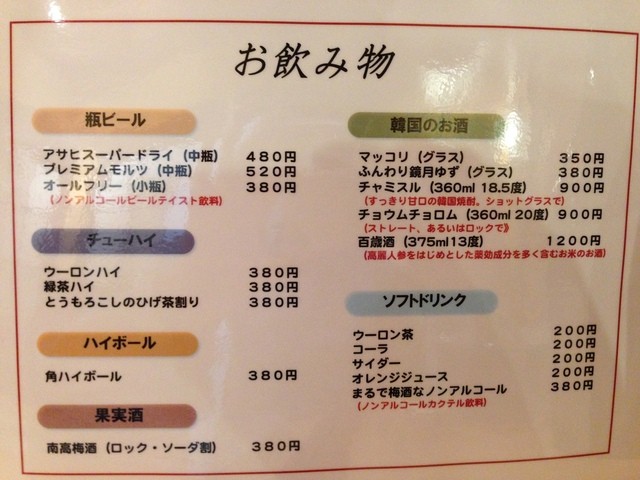 お飲み物
瓶ビール
アサヒスーパードライ（中瓶） 480円
プレミアムモルツ（中瓶） 520円
オールフリー（小瓶） 380円
（ノンアルコールビールテイスト飲料）
チューハイ
ウーロンハイ 380円
緑茶ハイ 380円
とうもろこしのひげ茶割り 380円
ハイボール
角ハイボール 380円
果実酒
南高梅酒（ロック・ソーダ割） 380円
韓国のお酒
マッコリ（グラス） 350円
ふんわり鏡月ゆず（グラス） 380円
チャミスル（360ml 18.5度） 900円
（すっきり甘口の韓国焼酎。ショットグラスで）
チョウムチョロム（360ml 20度） 900円
（ストレート、あるいはロックで》
百歳酒（375ml13度） 1200円
（高麗人参をはじめとした薬効成分を多く含むお米のお酒）
ソフトドリンク
ウーロン茶 200円
コーラ 200円
サイダー 200円
オレンジジュース 200円
まるで梅酒なノンアルコール 380円
（ノンアルコールカクテル飲料）